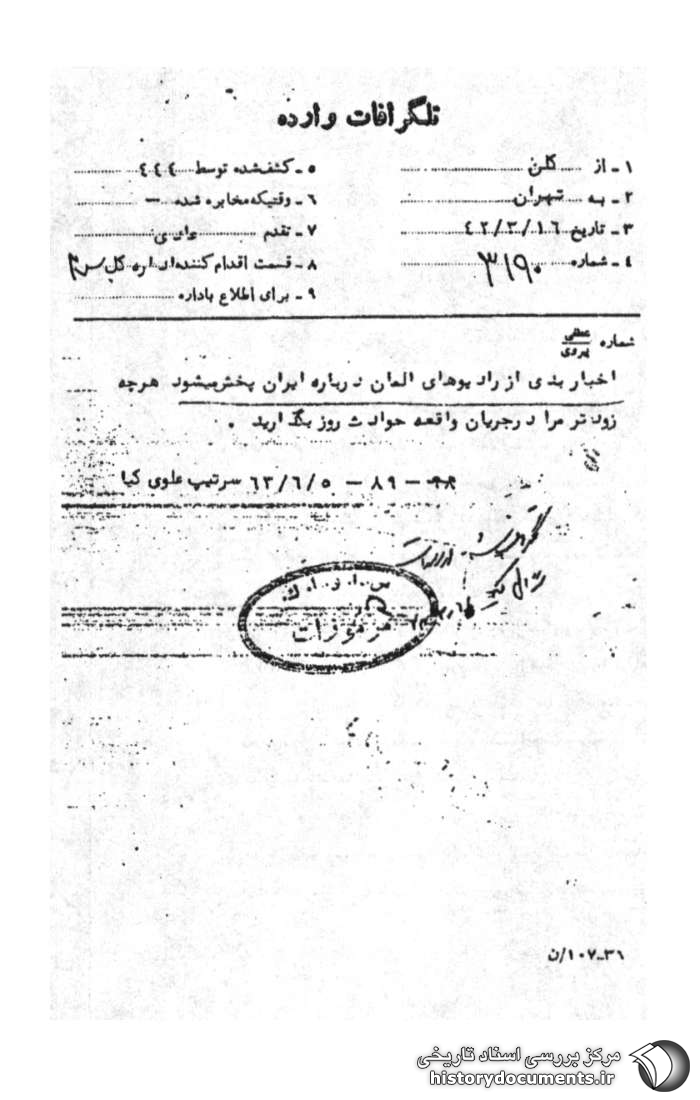 تلگرافات وارده
۱ - از کلن
۲ - به تهران
۳ - تاریخ ۴۲/۳/۱۶
۴ - شماره ۳۱۹۰
۵ - کشف‌شده توسط ۴۴۴
۶ - وقتیکه مخابره شده -
۷ - تقدم عادی
۸ - قسمت اقدام کننده اداره کل سوم
۹ - برای اطلاع باداره
شماره عطفی
پیروی
اخبار بدی از رادیوهای المان درباره ایران پخش میشود هرچه
زودتر مرا درجریان واقعه حوادث روز بگذارید .
۸۹ - ۶۳/۶/۵ سرتیپ علوی کیا
س . ا . و . ا . ک
مرموزات
۳۶-۱۰۷/ن
مرکز بررسی اسناد تاریخی
historydocuments.ir